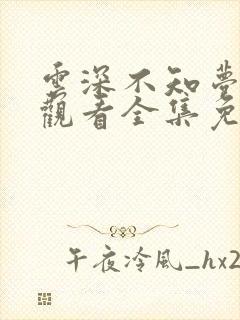 雲深不知夢
觀看全集免
午夜冷風_hx2